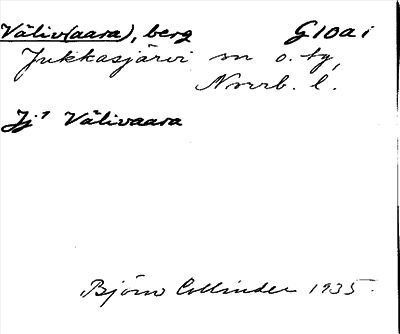 Väliv(aara), berg G10ai
Jukkasjärvi sn o. tg,
Norrb. l.
Jj.¹ Välivaara
Björn Collinder 1935.